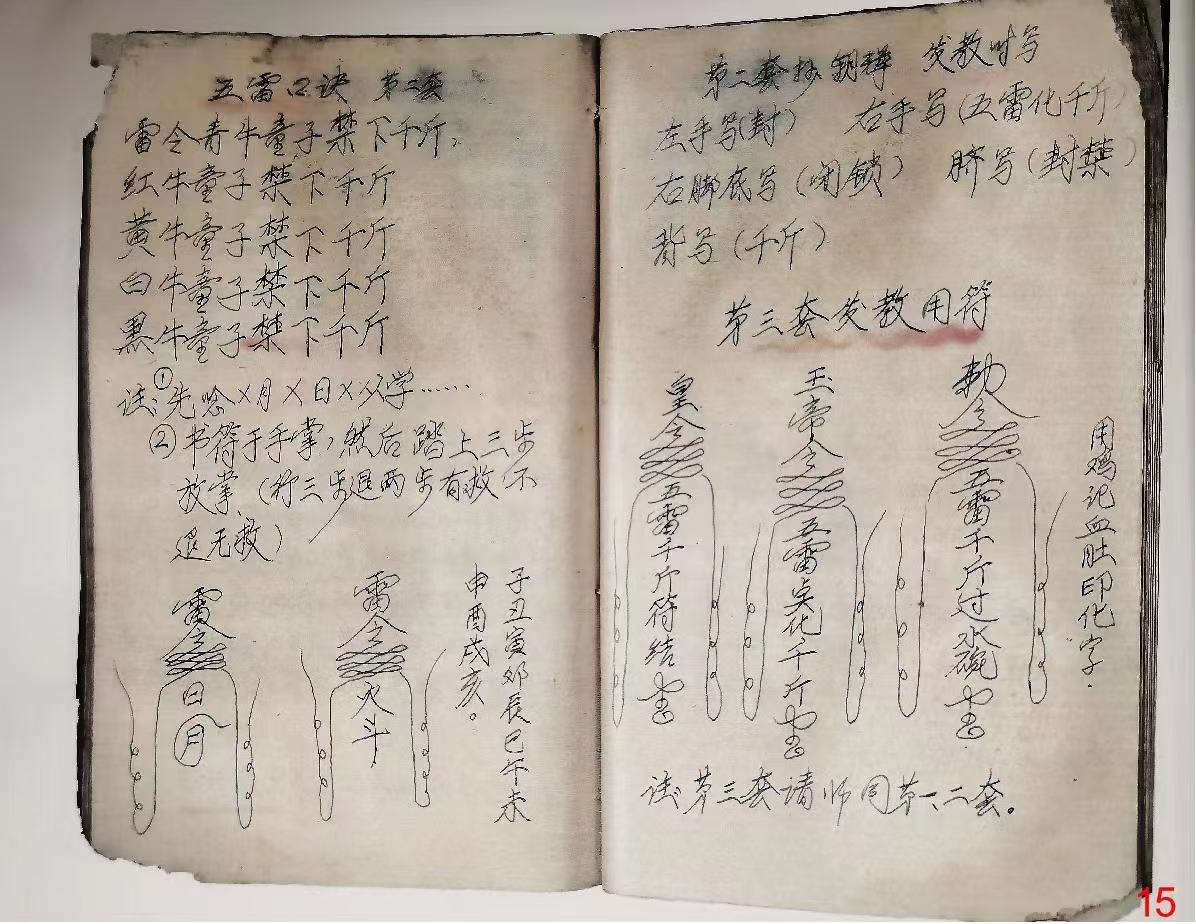 五雷口诀 第二套
雷令青牛童子禁下千斤,
红牛童子禁下千斤
黄牛童子禁下千斤
白牛童子禁下千斤
黑牛童子禁下千斤
注:①先念X月X日X从学……
②书符于手掌,然后踏上三步
放掌,(行三步退两步有救,不
退无救)
雷令
日月
雷令
火斗
子丑寅卯辰巳午未
申酉戌亥。
第二套 发教时写
左手写(封) 右手写(五雷化千斤)
右脚底写(闭锁) 脐写(封禁)
背写(千斤)
第三套发教用符
皇令
五雷千斤符结
玉帝令
五雷吴化千斤
勅令
五雷千斤过水碗
用鸡记血肚印化字.
注:第三套请师同第一、二套。
15